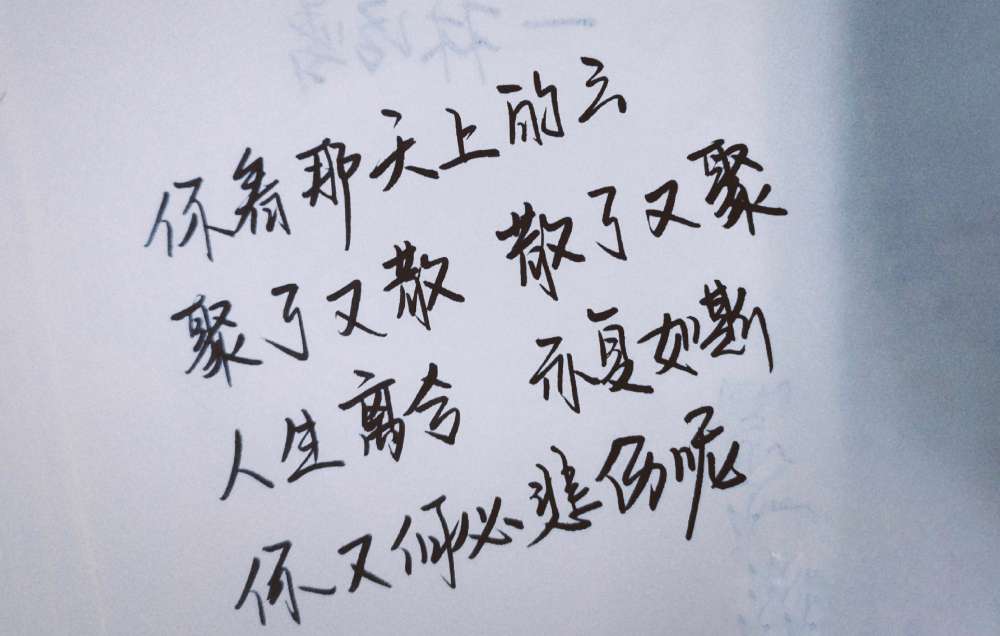 你看那天上的云
聚了又散 散了又聚
人生离合 亦复如斯
你又何必悲伤呢